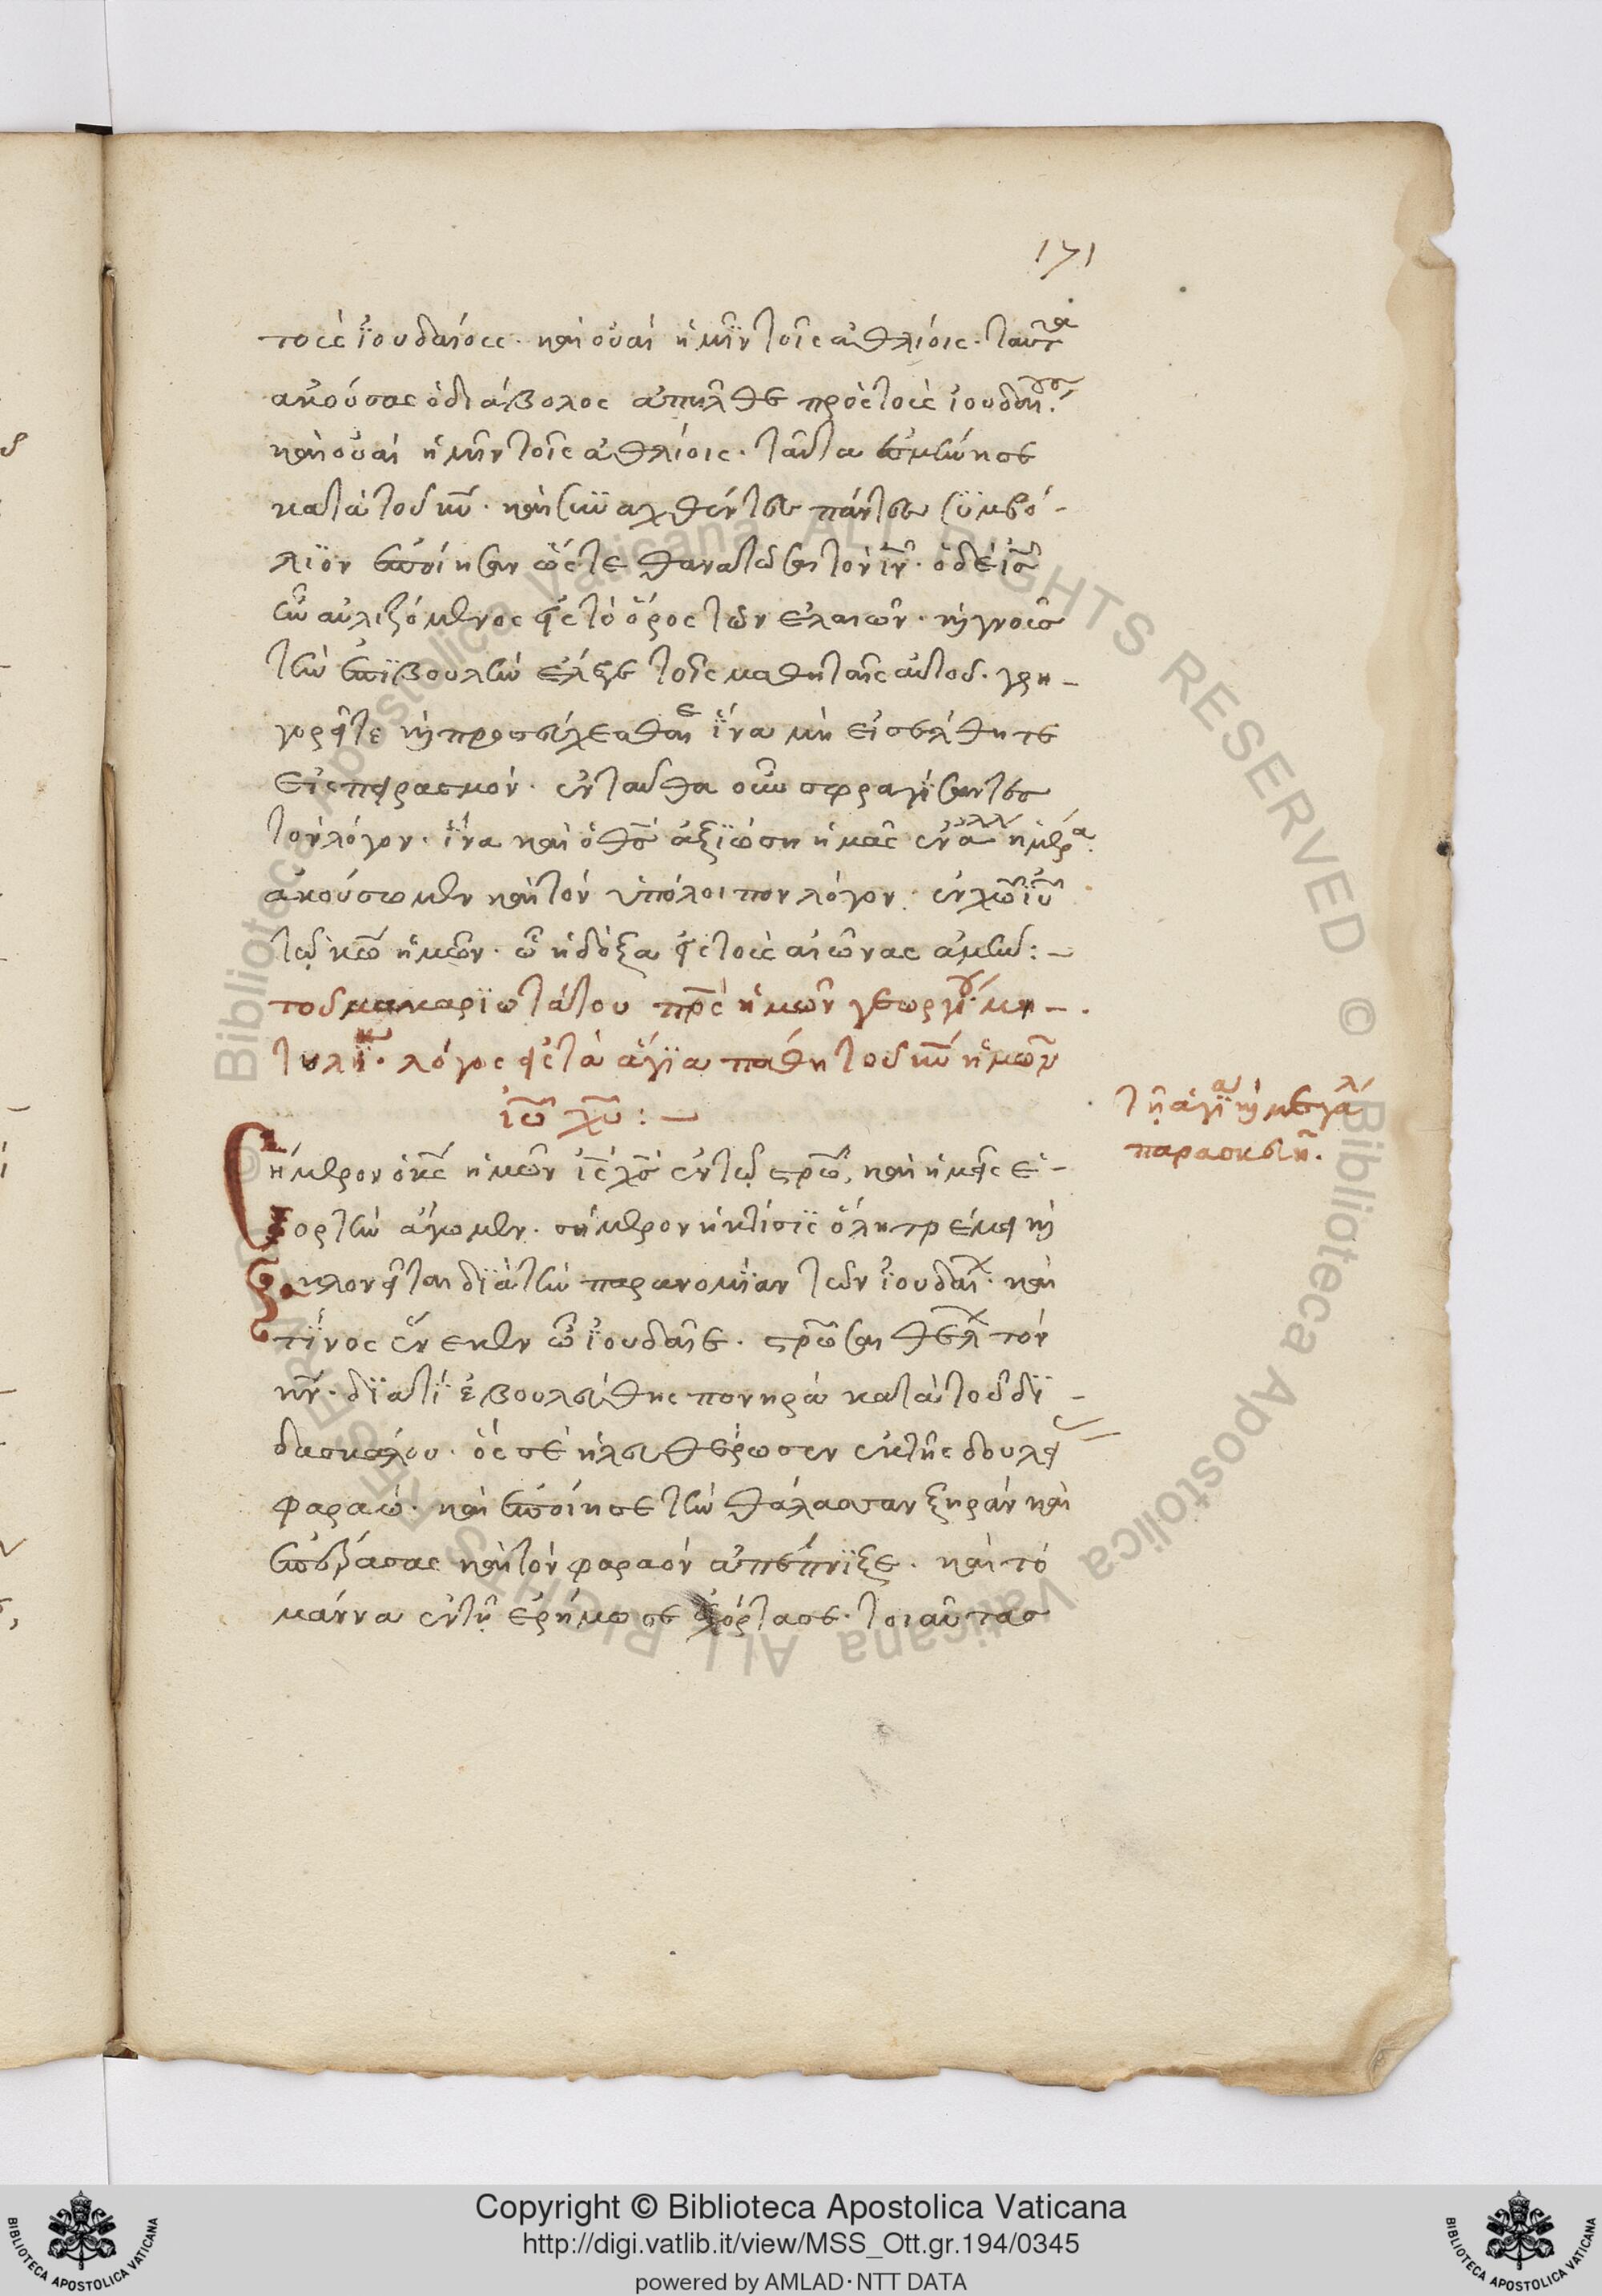 171
τοὺς ἰουδαίους. καὶ οὐαὶ ἡμῖν τοῖς ἀθλίοις. ταῦτα
ἀκούσας ὁ διάβολος ἀπῆλθε πρὸς τοὺς ἰουδαίους.
καὶ οὐαὶ ἡμῖν τοῖς ἀθλίοις. ταῦτα
κατὰ τοῦ κυ̅. καὶ συναχθέντες πάντες συμβό-
λιον ἐποίησαν ὥστε θανατῶσαι τὸν ιν̅. ὁ δὲ ις̅
ἦν αὐλιζόμενος εἰς τὸ ὄρος τῶν ἐλαιῶν. καὶ γνοὺς
τὴν ἐπιβουλὴν ἔλεγε τοῖς μαθηταῖς αὐτοῦ. γρη-
γορεῖτε καὶ προσεύχεσθαι ε ἵνα μὴ εἰσέλθητε
εἰς πειρασμόν. ἐνταῦθα οὖν σφραγίσαντες
τὸν λόγον. ἵνα καὶ ὁ θς̅ ἀξιώση ἡμᾶς ἐν ἄλλη ἡμέρα.
ἀκούσωμεν καὶ τὸν ὑπόλοιπον λόγον. ἐν χω̅ ιυ̅
τῷ κω̅ ἡμῶν. ὧ ἡ δόξα εἰς τοὺς αἰῶνας ἀμήν:–
τοῦ μακαριωτάτου πρς̅ ἡμῶν γεωργίου μη-
λόγος εἰς τὰ ἅγια πάθη τοῦ κυ̅ ἡμῶν
ιυ̅ χυ̅:–
τῆ ἁγία καὶ μεγάλη
παρασκευῆ.
Σήμερον ὁ κς̅ ἡμῶν ις̅ χς̅ ἐν τῷ στρω̅, καὶ ἡμεῖς ἑ-
ορτὴν ἄγωμεν. σήμερον ἡ κτίσις ὅλη τρέμει καὶ
κλονεῖται διὰ τὴν παρανομίαν τῶν ἰουδαίων. καὶ
τίνος ἕνεκεν ὦ ἰουδαῖε. στρω̅σαι θέλεις τὸν
κν̅. διατί ἐβουλεύθης πονηρὰ κατὰ τοῦ δι-
δασκάλου. ὅς σε ἠλευθέρωσεν ἐκ τῆς δουλεί
φαραώ. καὶ ἐποίησε τὴν θάλασσαν ξηρὰν καὶ
καὶ τὸν φαραὸν ἀπέπνιξε. καὶ τὸ
μάννα ἐν τῆ ἐρήμω σε ἐχόρτασε. τοιαύτας
Copyright © Biblioteca Apostolica Vaticana
http://digi.vatlib.it/view/MSS_Ott.gr.194/0345
powered by AMLAD·NTT DATA
BIBLIOTECA APOSTOLICA VATICANA
BIBLIOTECA APOSTOLICA VATICANA
© Biblioteca Apostolica Vaticana ALL RIGHTS RESERVED © Biblioteca Apostolica Vaticana ALL RIGHTS RESERVED